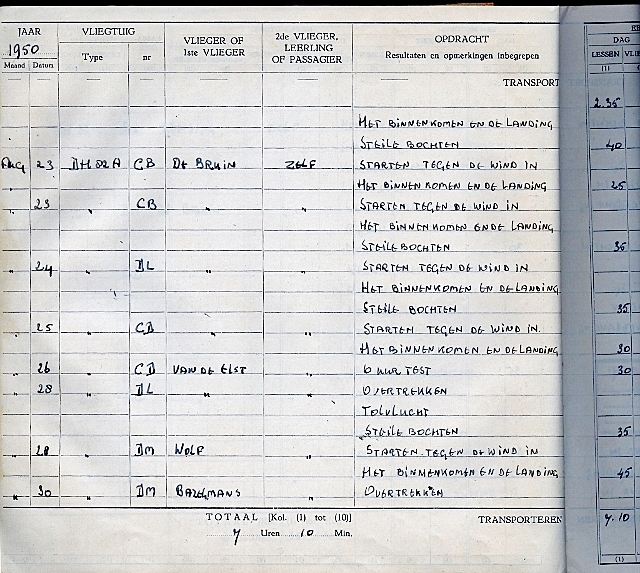 JAAR VLIEGTUIG VLIEGER OF 1STE VLIEGER 2de VLIEGER, LEERLING OF PASSAGIER OPDRACHT DAG
1950 Type nr Resultaten en opmerkingen inbegrepen LESSEN
Maand Datum (1)
TRANSPORT
2.35
HET BINNENKOMEN EN DE LANDING
STEILE BOCHTEN 40
Aug 23 DH 82A CB DE BRUIN ZELF STARTEN TEGEN DE WIND IN
HET BINNENKOMEN EN DE LANDING 25
" 23 " CB " " STARTEN TEGEN DE WIND IN
HET BINNENKOMEN EN DE LANDING
STEILE BOCHTEN 35
" 24 " DL " " STARTEN TEGEN DE WIND IN
HET BINNENKOMEN EN DE LANDING
STEILE BOCHTEN 35
" 25 " CD " " STARTEN TEGEN DE WIND IN
HET BINNENKOMEN EN DE LANDING 30
" 26 " CD VAN DE ELST " 6 UUR TEST 30
" 28 " DL " " OVERTREKKEN
TOLVLUCHT
STEILE BOCHTEN 35
" 28 " DM WOLF " STARTEN TEGEN DE WIND IN
HET BINNENKOMEN EN DE LANDING 45
" 30 " DM " OVERTREKKEN
TOTAAL [Kol. (1) tot (10)] TRANSPORTEREN 7.10
7 Uren 10 Min.
(1)